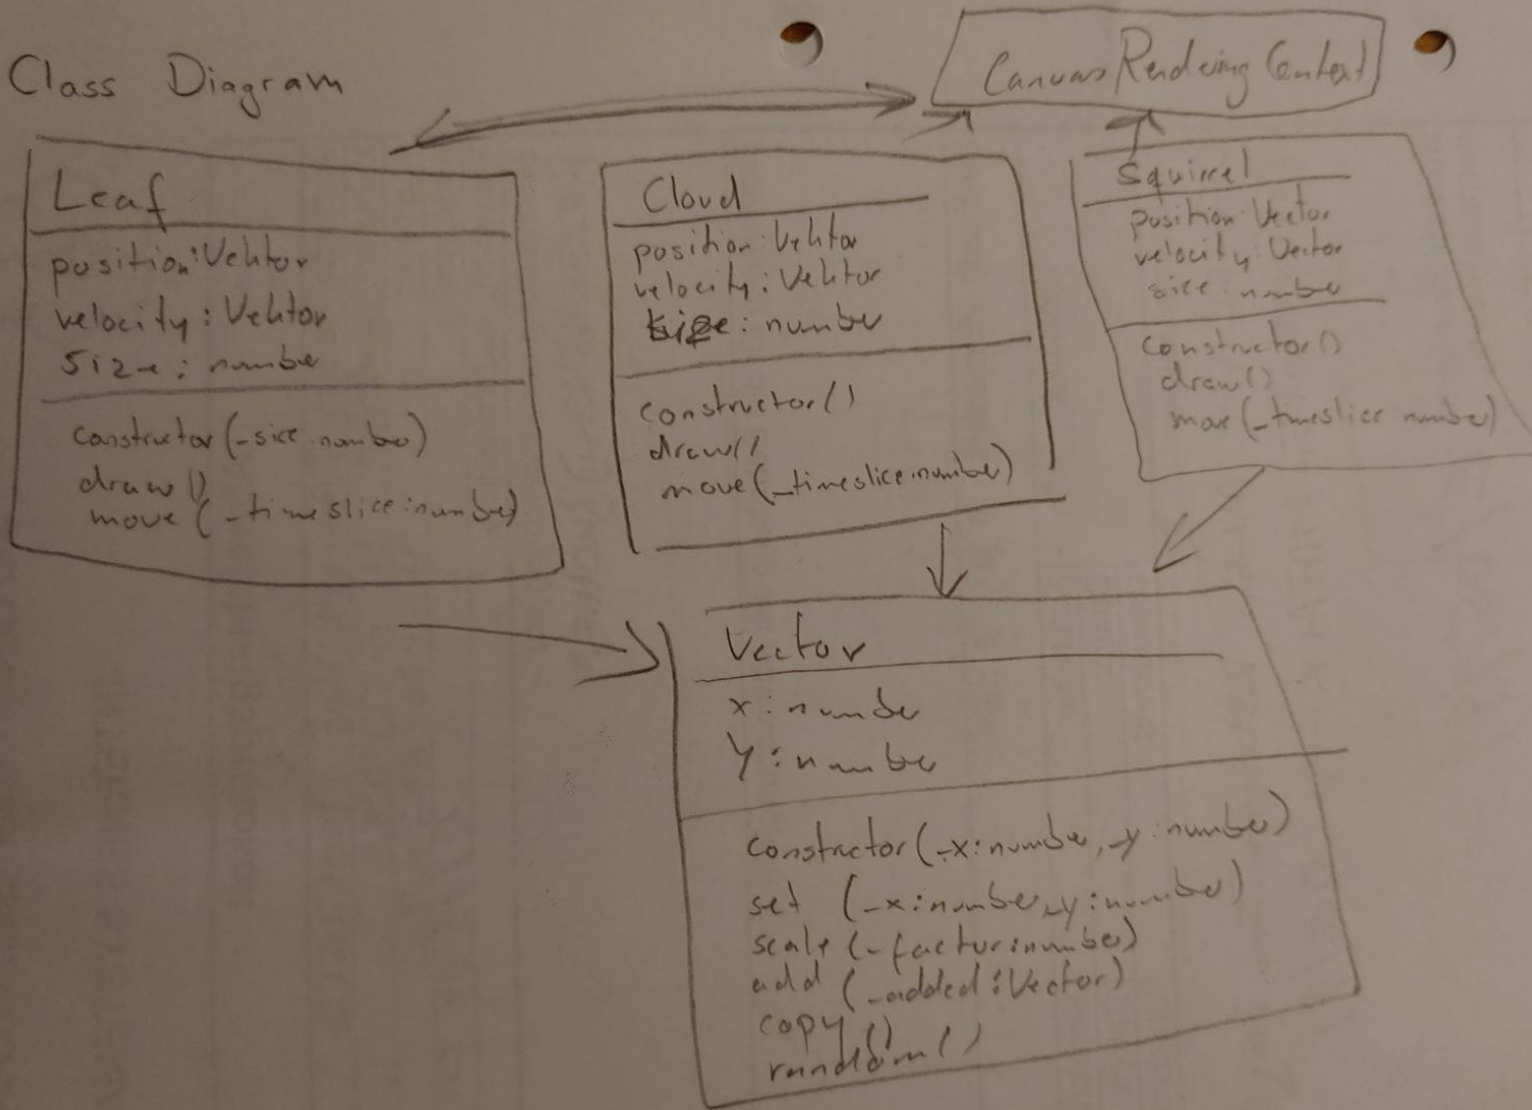 Class Diagram
CanvasRenderingContext
Leaf
position:Vektor
velocity:Vektor
size: number
constructor(_size:number)
draw()
move (_timeslice:number)
Cloud
position:Vektor
velocity:Vektor
size: number
constructor()
draw()
move(_timeslice:number)
Squirrel
position:Vector
velocity:Vector
size: number
constructor()
draw()
move(_timeslice number)
Vector
x:number
y:number
constructor(_x:number,_y:number)
set (_x:number,_y:number)
scale(_factor:number)
add (_added:Vector)
copy()
random()